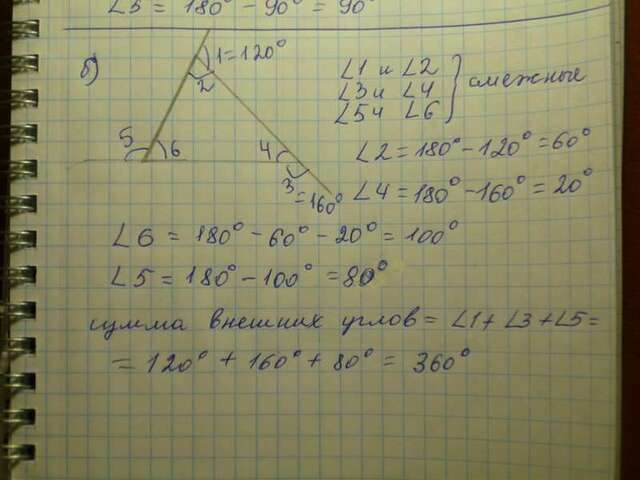 ∠5 = 180° - 90° = 90°
б)
1=120°
2
5
6
4
3
=160°
∠1 и ∠2
∠3 и ∠4
∠5 и ∠6
смежные
∠2 = 180° - 120° = 60°
∠4 = 180° - 160° = 20°
∠6 = 180° - 60° - 20° = 100°
∠5 = 180° - 100° = 80°
сумма внешних углов = ∠1 + ∠3 + ∠5 =
= 120° + 160° + 80° = 360°